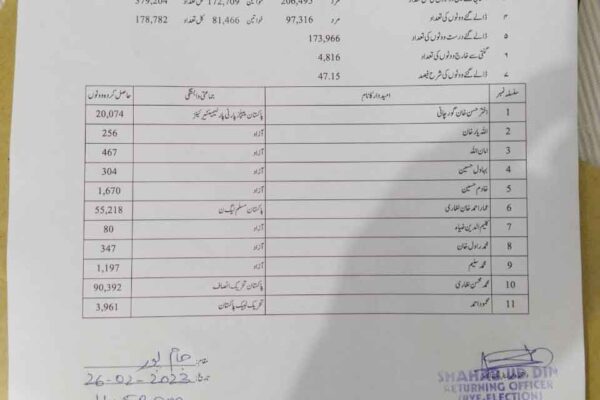 379,204 کل تعداد 172,709 خواتین 206,495 مرد
۴ ڈالے گئے ووٹوں کی تعداد مرد 97,316 خواتین 81,466 کل تعداد 178,782
۵ ڈالے گئے درست ووٹوں کی تعداد 173,966
۶ گنتی سے خارج ووٹوں کی تعداد 4,816
۷ ڈالے گئے ووٹوں کی شرح فیصد 47.15
سلسلہ نمبر امیدوار کا نام جماعتی وابستگی حاصل کردہ ووٹوں
1 اختر حسن خان گورچانی پاکستان پیپلز پارٹی پارلیمینٹیرینز 20,074
2 اللہ یار خان آزاد 256
3 امان اللہ آزاد 467
4 بہاول حسین آزاد 304
5 خادم حسین آزاد 1,670
6 عمار احمد خان لغاری پاکستان مسلم لیگ ن 55,218
7 کلیم الدین ضیاء آزاد 80
8 محمد راول خان آزاد 347
9 محمد سلیم آزاد 1,197
10 محمد محسن لغاری پاکستان تحریک انصاف 90,392
11 محمود احمد تحریک لبیک پاکستان 3,961
مقام: جام پور
تاریخ: 26-02-2023
SHAHAB UD DIN
RETURNING OFFICER
(BYE-ELECTION)